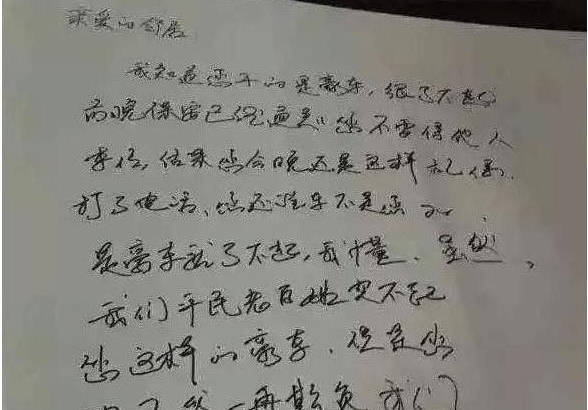 亲爱的邻居
我知道您开的是豪车，很了不起
前晚保安已经通知您不要停他人
车位，结果您今晚还是这样
打了电话、您还说车不是您
是豪车就了不起，我
我们平民老百姓买不起
您这样的豪车，但是您
一再欺负我们